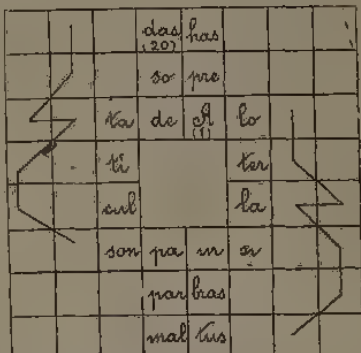 das has
(20)
so pre
ta de A lo
(1)
ti ter
cul la
son pa in si
par bras
mal tus